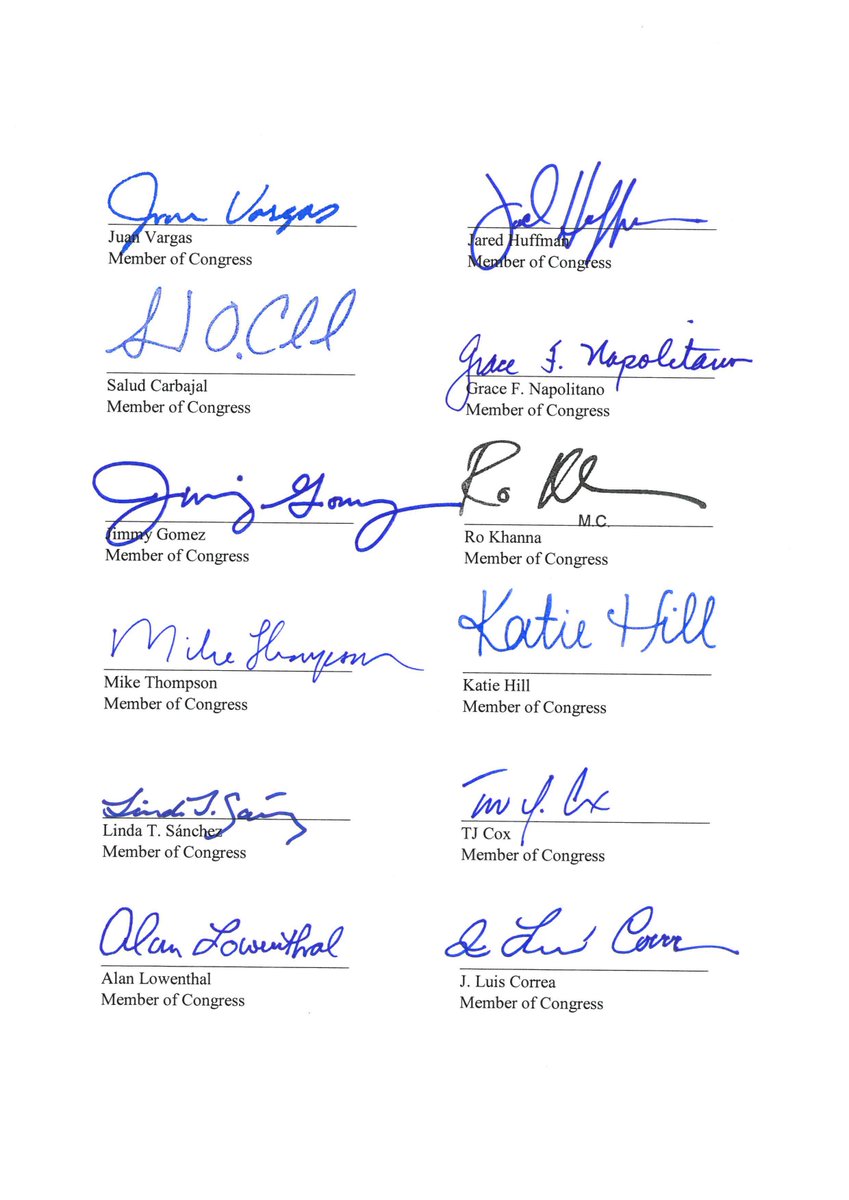 Juan Vargas
Juan Vargas
Member of Congress
Jared Huffman
Member of Congress
Salud Carbajal
Member of Congress
Grace F. Napolitano
Grace F. Napolitano
Member of Congress
Jimmy Gomez
Jimmy Gomez
Member of Congress
Ro
M.C.
Ro Khanna
Member of Congress
Mike Thompson
Mike Thompson
Member of Congress
Katie Hill
Katie Hill
Member of Congress
Linda T. Sánchez
Linda T. Sánchez
Member of Congress
Cox
TJ Cox
Member of Congress
Alan Lowenthal
Alan Lowenthal
Member of Congress
Correa
J. Luis Correa
Member of Congress